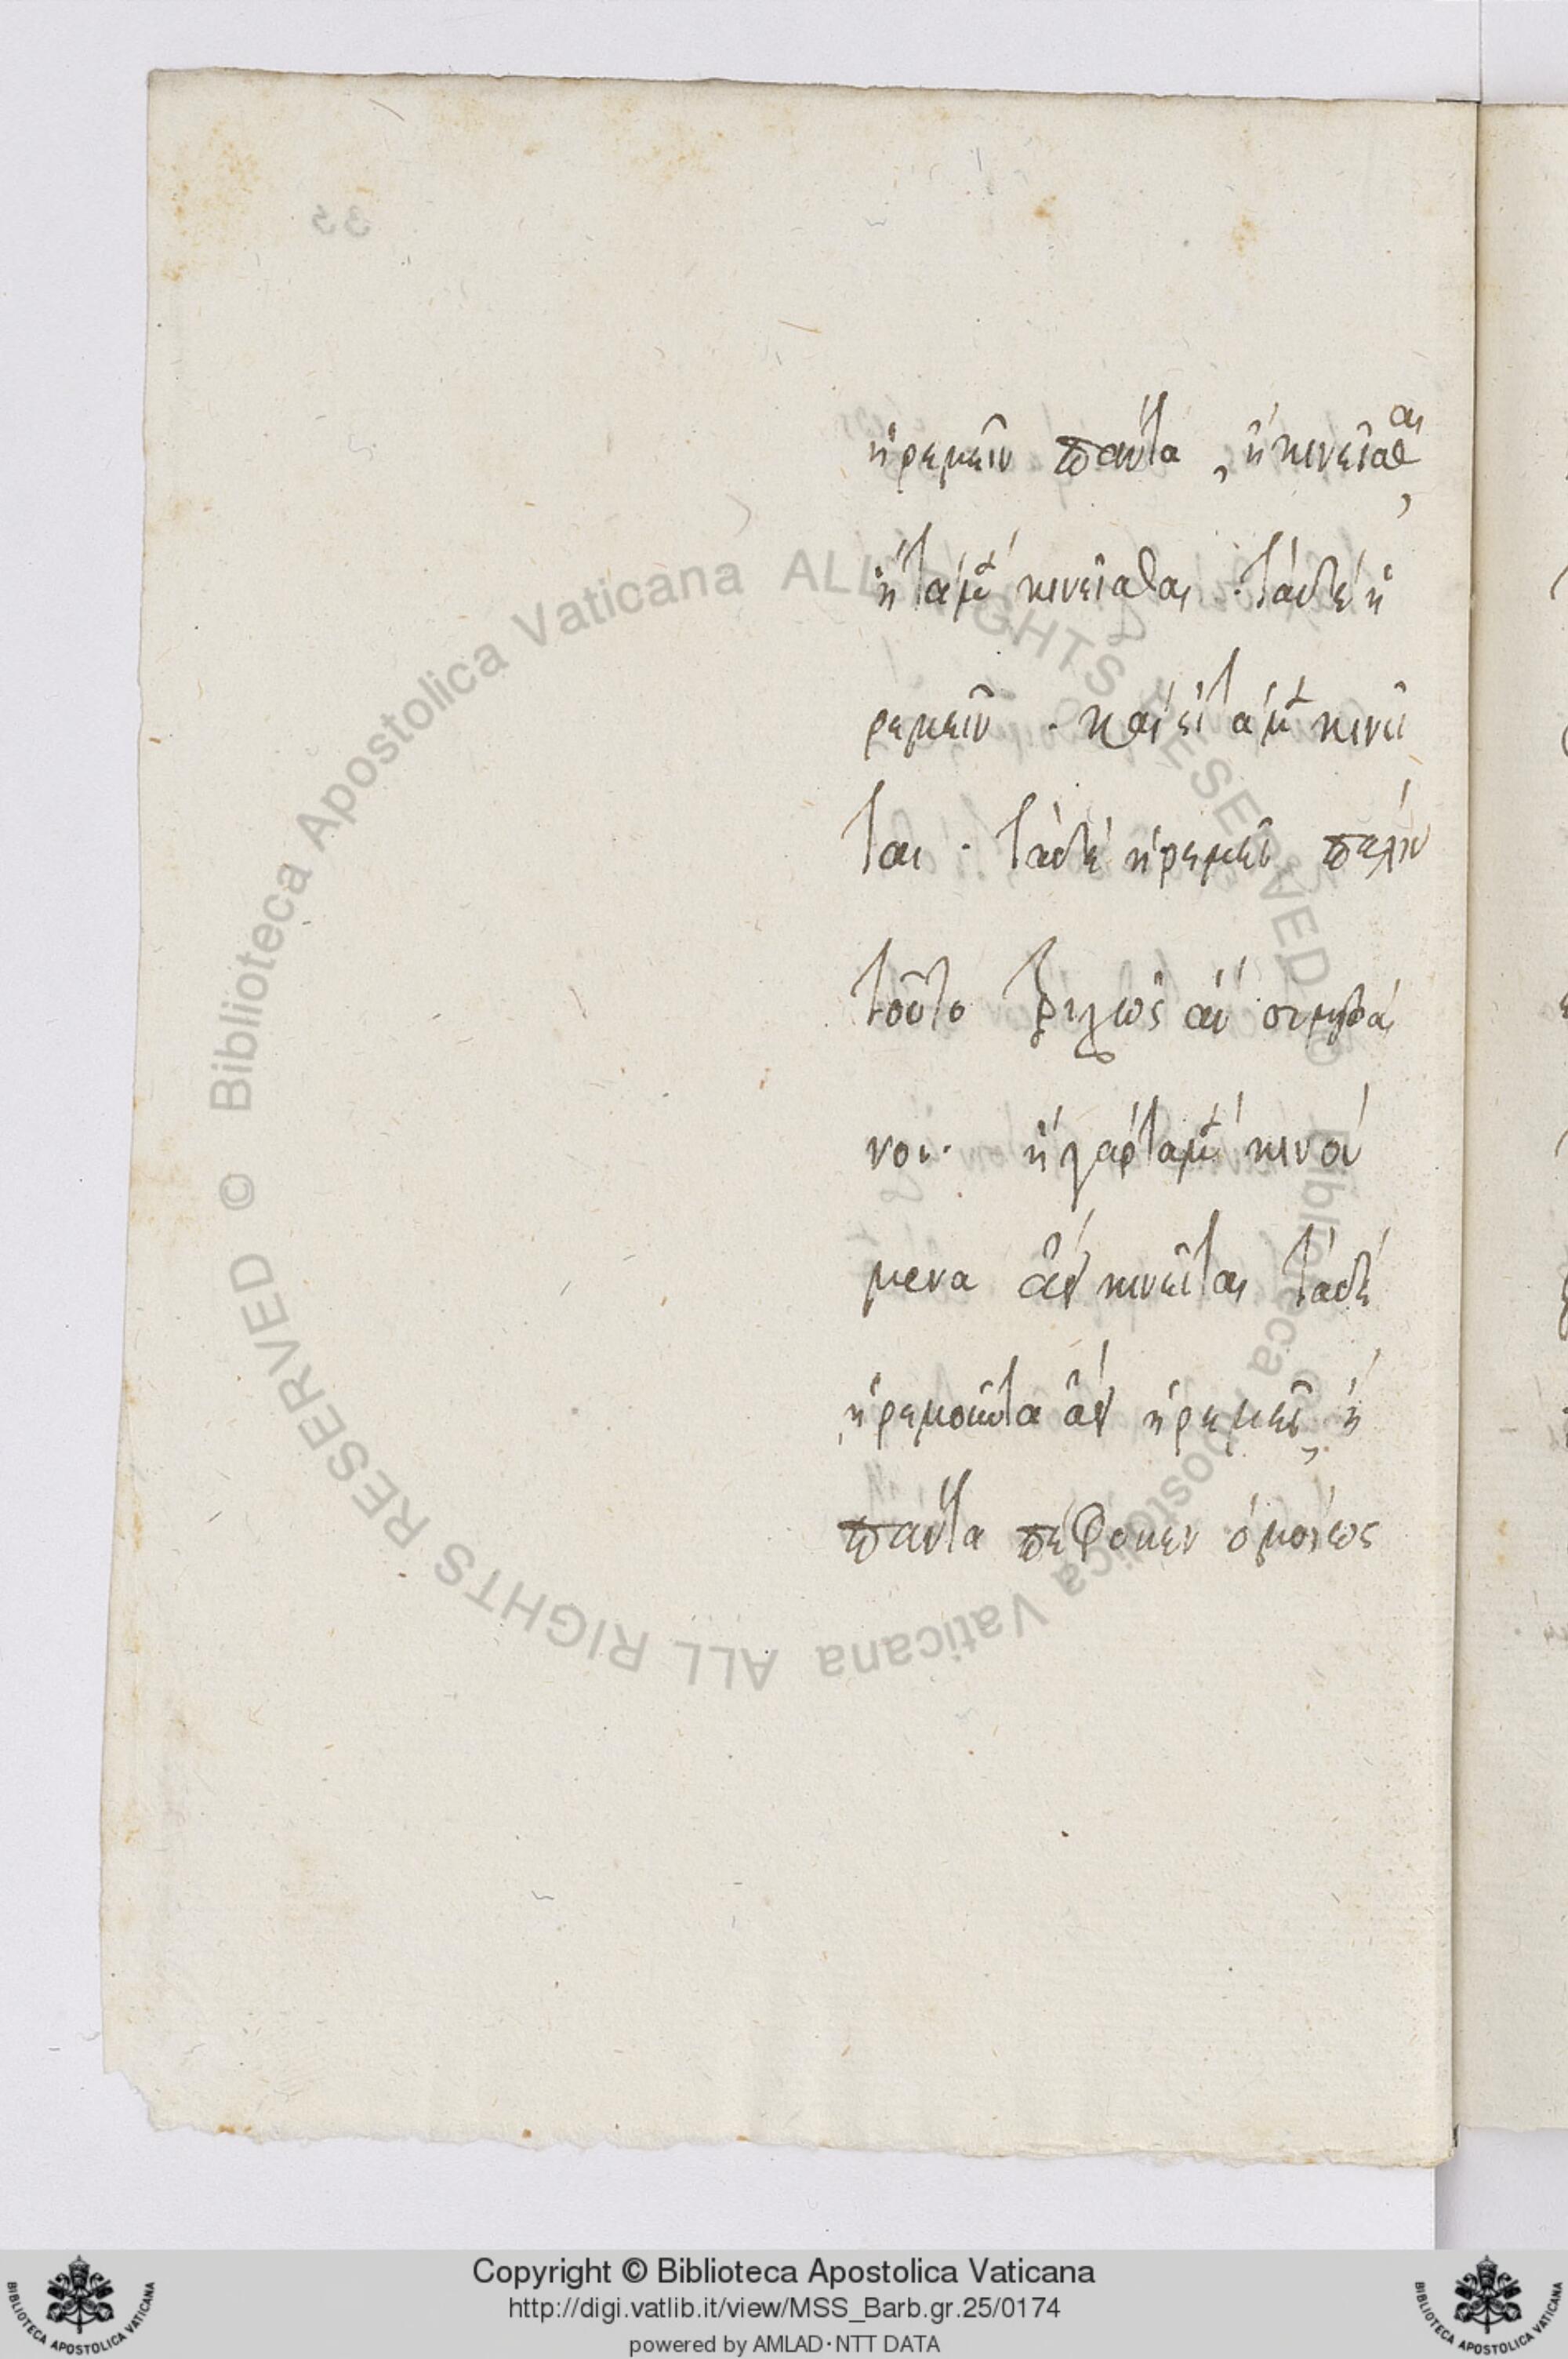 ἠρεμεῖν πάντα, ἢ κινεῖσθαι,
ἢ τὰ μὲν κινεῖσθαι · τὰ δὲ ἠ
ρεμεῖν · καὶ εἰ τὰ μὲν κινεῖ
ται · τὰ δὲ ἠρεμεῖ πάλιν
τοῦτο τριχῶς ἂν συμβαί
νοι · ἢ γὰρ τὰ μὲν κινού
μενα ἀεὶ κινεῖται τὰ δὲ
ἠρεμοῦντα ἀεὶ ἠρεμεῖ, ἢ
πάντα πέφυκεν ὁμοίως
35
© Biblioteca Apostolica Vaticana ALL RIGHTS RESERVED © Biblioteca Apostolica Vaticana ALL RIGHTS RESERVED
Copyright © Biblioteca Apostolica Vaticana
http://digi.vatlib.it/view/MSS_Barb.gr.25/0174
powered by AMLAD·NTT DATA
BIBLIOTECA APOSTOLICA VATICANA
BIBLIOTECA APOSTOLICA VATICANA